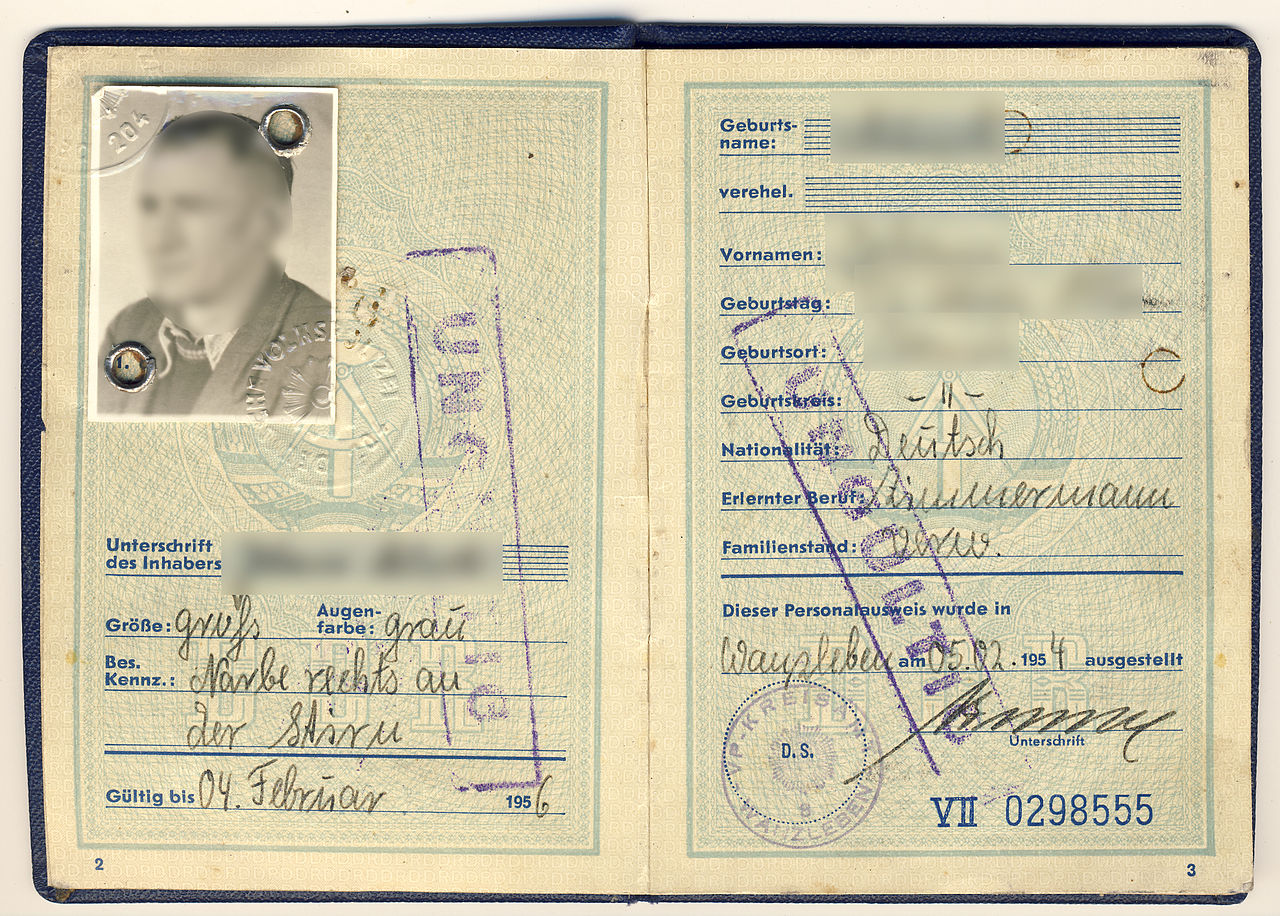 204
1.
Unterschrift
des Inhabers
Größe: groß Augen-
farbe: grau
Bes.
Kennz.: Narbe rechts an
der Stirn
Gültig bis 04. Februar 1956
UNGÜLTIG
2
Geburts-
name:
verehel.
Vornamen:
Geburtstag:
Geburtsort:
Geburtskreis: - " -
Nationalität: Deutsch
Erlernter Beruf: Zimmermann
Familienstand: verw.
UNGÜLTIG
Dieser Personalausweis wurde in
Wanzleben am 05.02.1954 ausgestellt
Unterschrift
D. S.
8
WANZLEBEN
VII 0298555
3